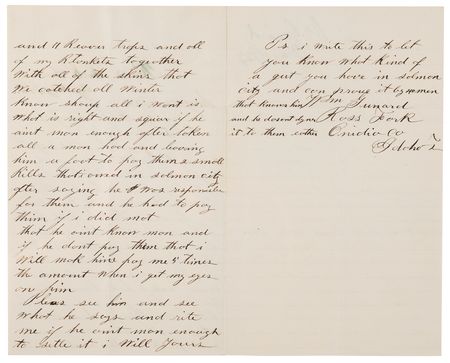 and 11 Beaver traps and all
of my Blankets togather
with all of the skins that
we catched all winter
know shoup all i want is
what is right and squar if he
aint man enough after taken
all a man had and leaving
him a foot to pay them small
Bills that i owed in salmon city
after saying he was responsible
for them and he had to pay
them if i did not
that he aint know man and
if he dont pay them that i
will mak him pay me 5 times
the amount when i get my eyes
on him
Pleas see him and see
what he says and rite
me if he aint man enough
to settle it i will yours
Ps i write this to let
you know what kind of
a gut you have in salmon
city and can prove it by women
that knows him Wm Junard
and he dosent dyne Ross Fork
it to them eather Onidia Co
Idaho T